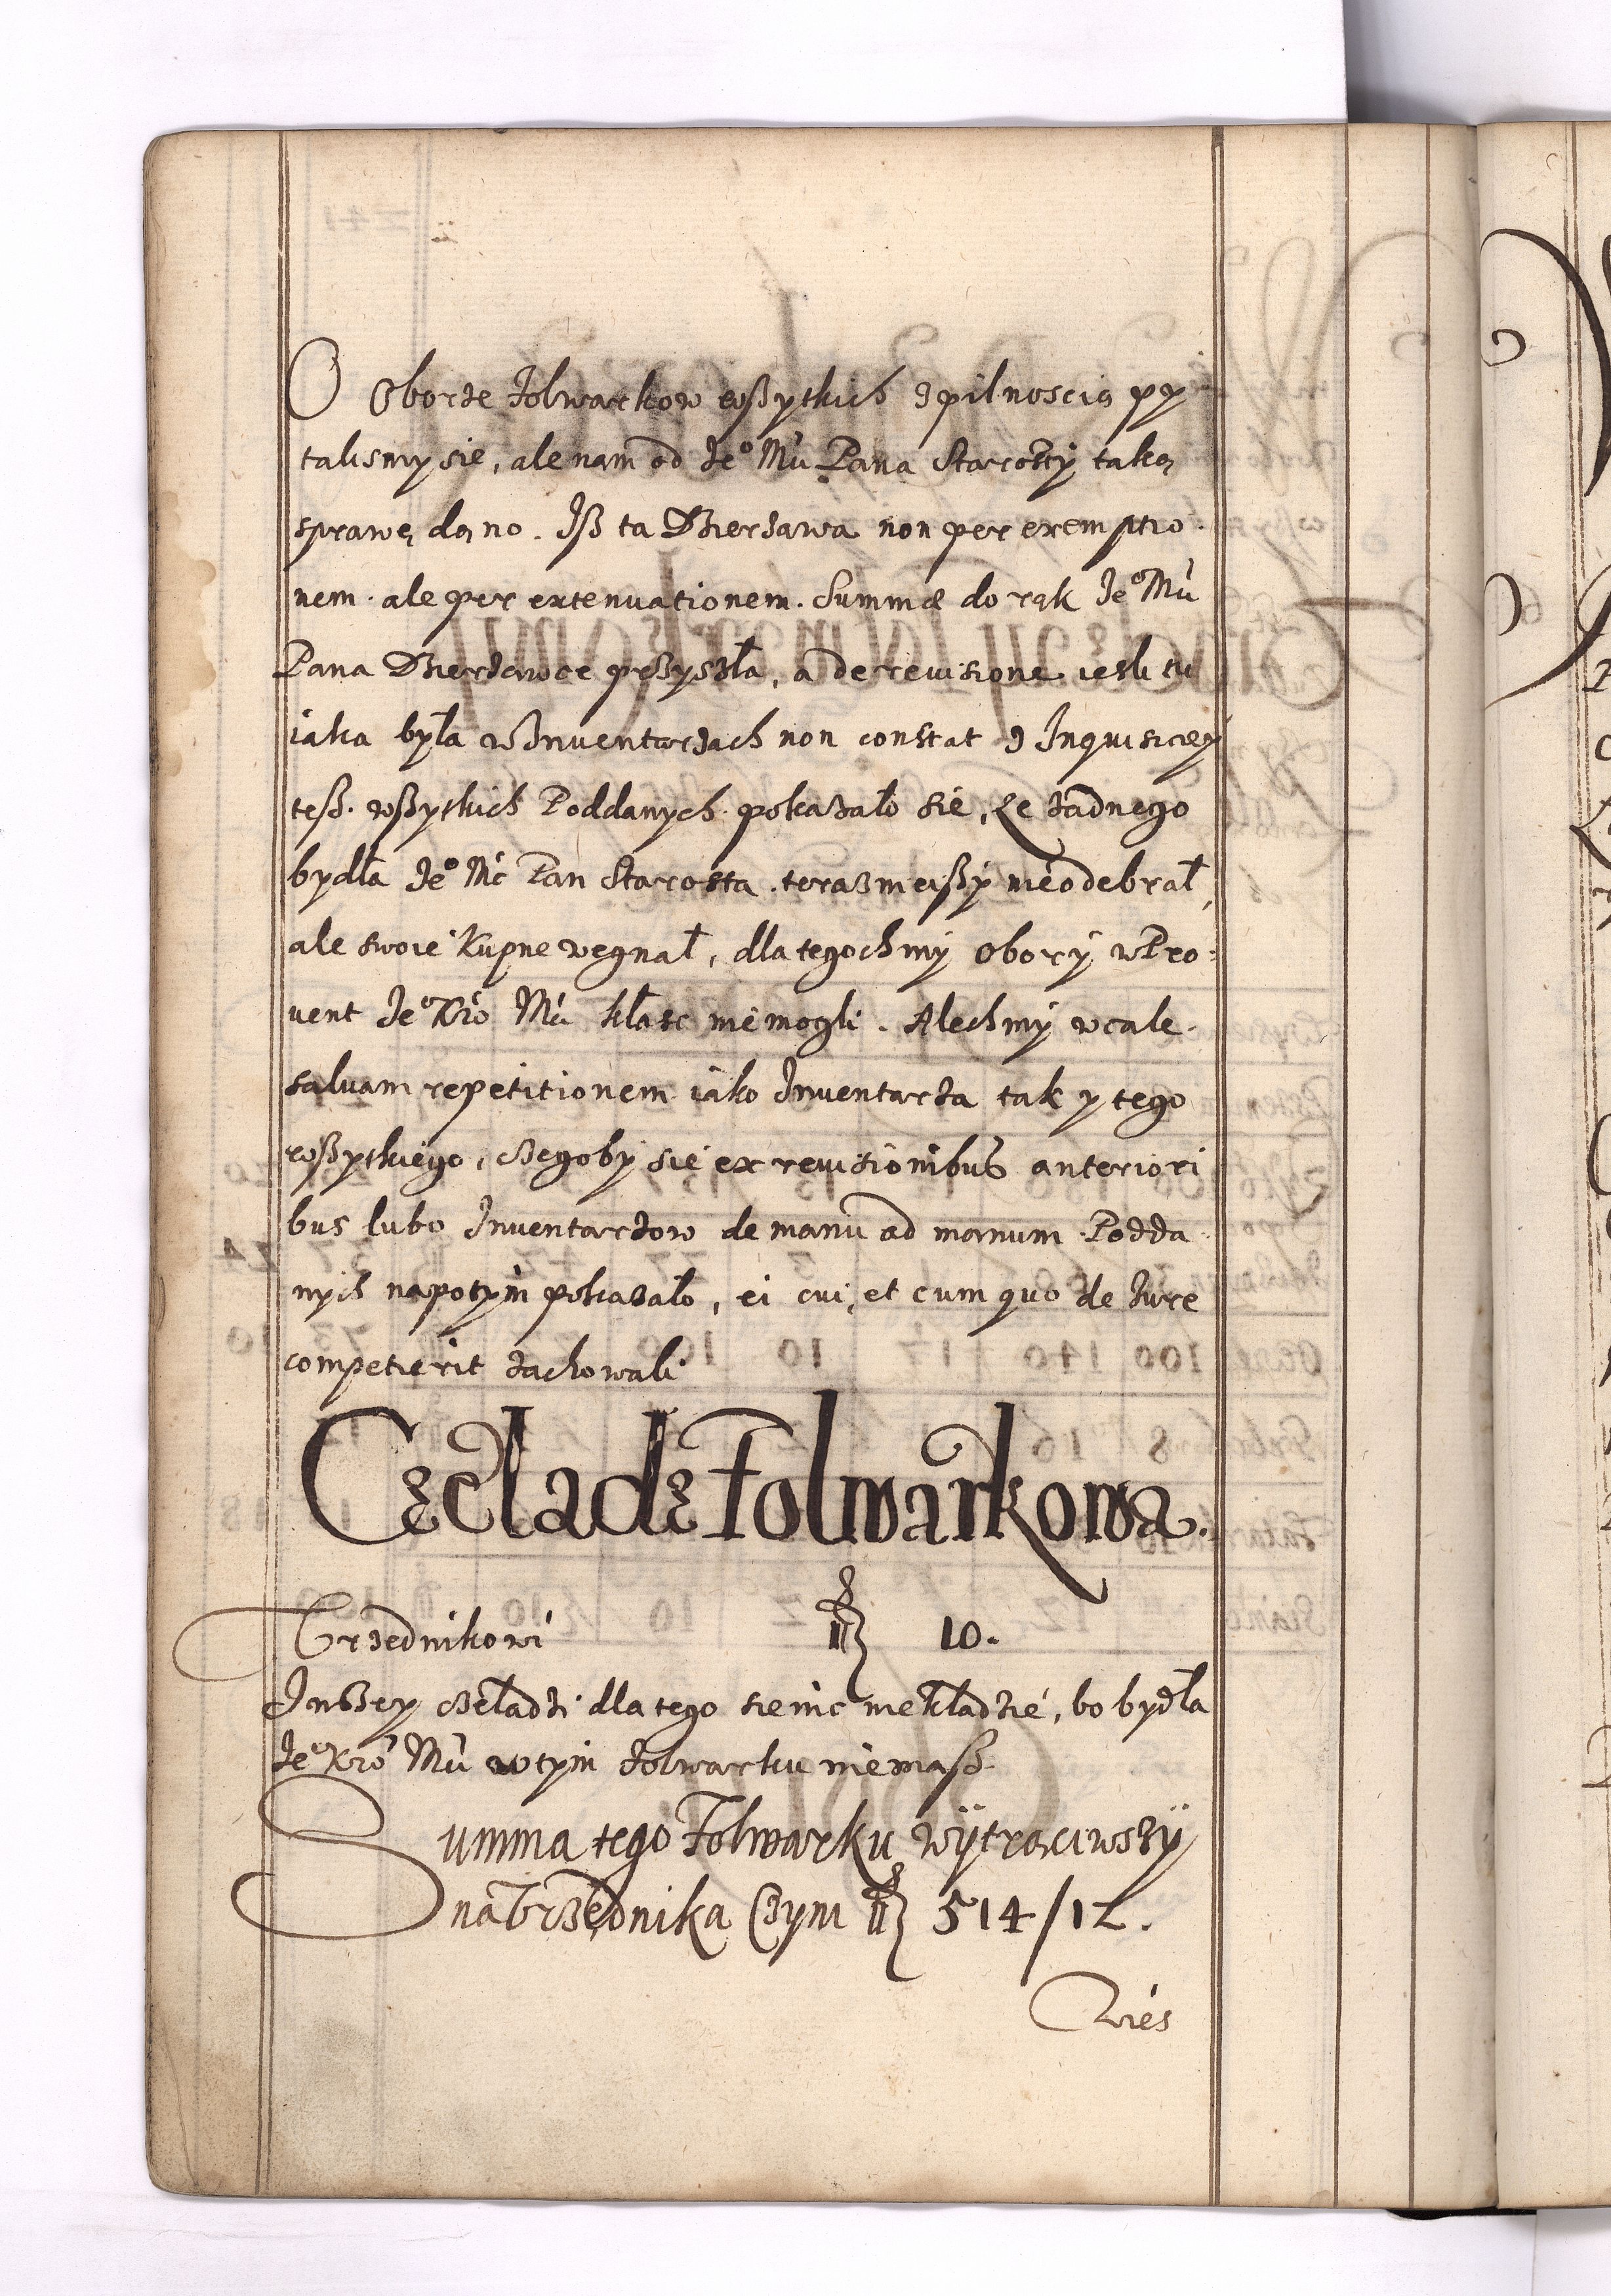 O Oborze folwarkow wßytkich z pilnoscią py
talismy sie, ale nam od Jeº Mći Pana Starosty taką
sprawę dąno. Jß ta Dzierżawa non per exemptio
nem. ale per extenuationem. Summæ do rąk Jeº Mći
Pana Dzierżawce przyszła, a de revisione iesli tu
iaka była w Inventarzach non constat z Inquisiciey
teß. wßytkich Poddanych pokazało sie, że żadnego
bydła Jeº Mć Pan Starosta terazmeißy nieodebrał,
ale swoie kupne wegnał, dla tegochmy Obory w Pro:
vent Jeº Kró Mći kłasc niemogli. Alechmy wcale
salvam repetitionem iako Inventarza tak y tego
wßytkiego, czegoby sie ex revisionibus anteriori
bus lubo Inventarzow de manu ad manum Podda
nych napotym pokazało, ei cui, et cum quo de Jure
competierit zachowali
Czeladz Folwarkowa.
Urzednikowi 10.
Inszey czeladzi dla tego sie nic niekładzie, bo bydła
Jeº Kró Mći w tym folwarku niemaß
Summa tego Folwarku wÿtrąciwszÿ
na Urzędnika Czyni 514/12.
Wies